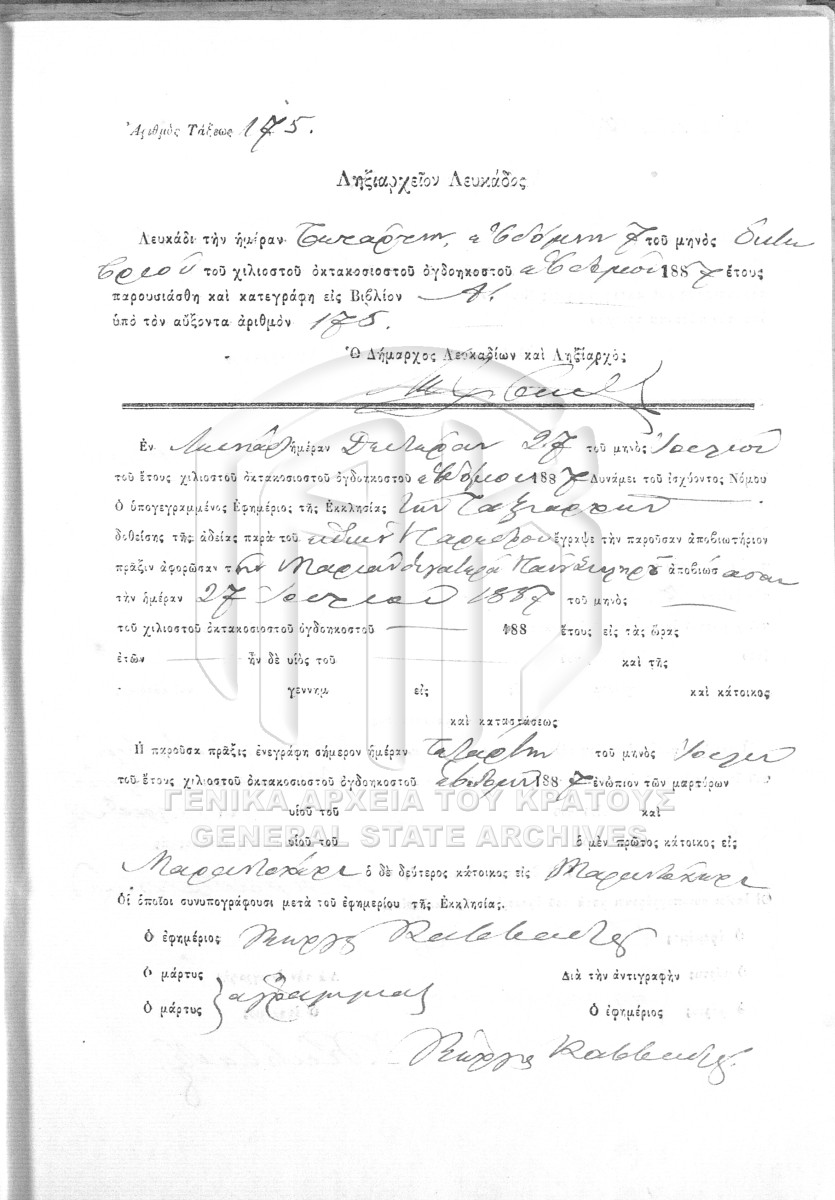 Ἀριθμὸς Τάξεως 175.
Ληξιαρχεῖον Λευκάδος
Λευκάδι τὴν ἡμέραν Τετάρτην, ἑβδόμην 7 τοῦ μηνὸς
βρίου τοῦ χιλιοστοῦ ὀκτακοσιοστοῦ ὀγδοηκοστοῦ ἑβδόμου 1887 ἔτους
παρουσιάσθη καὶ κατεγράφη εἰς Βιβλίον Α!
ὑπὸ τὸν αὔξοντα ἀριθμὸν 175.
Ὁ Δήμαρχος Λευκαδίων καὶ Ληξίαρχὸς
Ἐν ἡμέραν Δευτέραν 27 τοῦ μηνὸς Ἰουλίου
τοῦ ἔτους χιλιοστοῦ ὀκτακοσιοστοῦ ὀγδοηκοστοῦ ἑβδόμου 1887 Δυνάμει τοῦ ἰσχύοντος Νόμου
Ὁ ὑπογεγραμμένος Ἐφημέριος τῆς Ἐκκλησίας τῶν Ταξιαρχῶν
δοθείσης τῆς ἀδείας παρὰ τοῦ εἰδικοῦ Παρέδρου ἔγραψε τὴν παροῦσαν ἀποβιωτήριον
πρᾶξιν ἀφορῶσαν τὴν Μαρίαν θυγατέρα ἀποβιώσασαν
τὴν ἡμέραν 27 Ἰουλίου 1887 τοῦ μηνὸς
τοῦ χιλιοστοῦ ὀκτακοσιοστοῦ ὀγδοηκοστοῦ 188 ἔτους εἰς τὰς ὥρας
ἐτῶν ἦν δὲ υἱὸς τοῦ καὶ τῆς
γεννημ εἰς καὶ κάτοικος
καὶ καταστάσεως
Ἡ παροῦσα πρᾶξις ἐνεγράφη σήμερον ἡμέραν Τετάρτην τοῦ μηνὸς
τοῦ ἔτους χιλιοστοῦ ὀκτακοσιοστοῦ ὀγδοηκοστοῦ ἑβδόμου 1887 ἐνώπιον τῶν μαρτύρων
ΓΕΝΙΚΑ ΑΡΧΕΙΑ ΤΟΥ ΚΡΑΤΟΥΣ
υἱοῦ τοῦ καὶ
GENERAL STATE ARCHIVES
υἱοῦ τοῦ ὁ μὲν πρῶτος κάτοικος εἰς
Μαραντοχώρι ὁ δὲ δεύτερος κάτοικος εἰς Μαραντοχώρι
Οἱ ὁποῖοι συνυπογράφουσι μετὰ τοῦ ἐφημερίου τῆς Ἐκκλησίας.
Ὁ ἐφημέριος Γεώργιος
Ὁ μάρτυς Διὰ τὴν ἀντιγραφὴν
ἀγράμματοι
Ὁ μάρτυς Ὁ ἐφημέριος
Γεώργιος